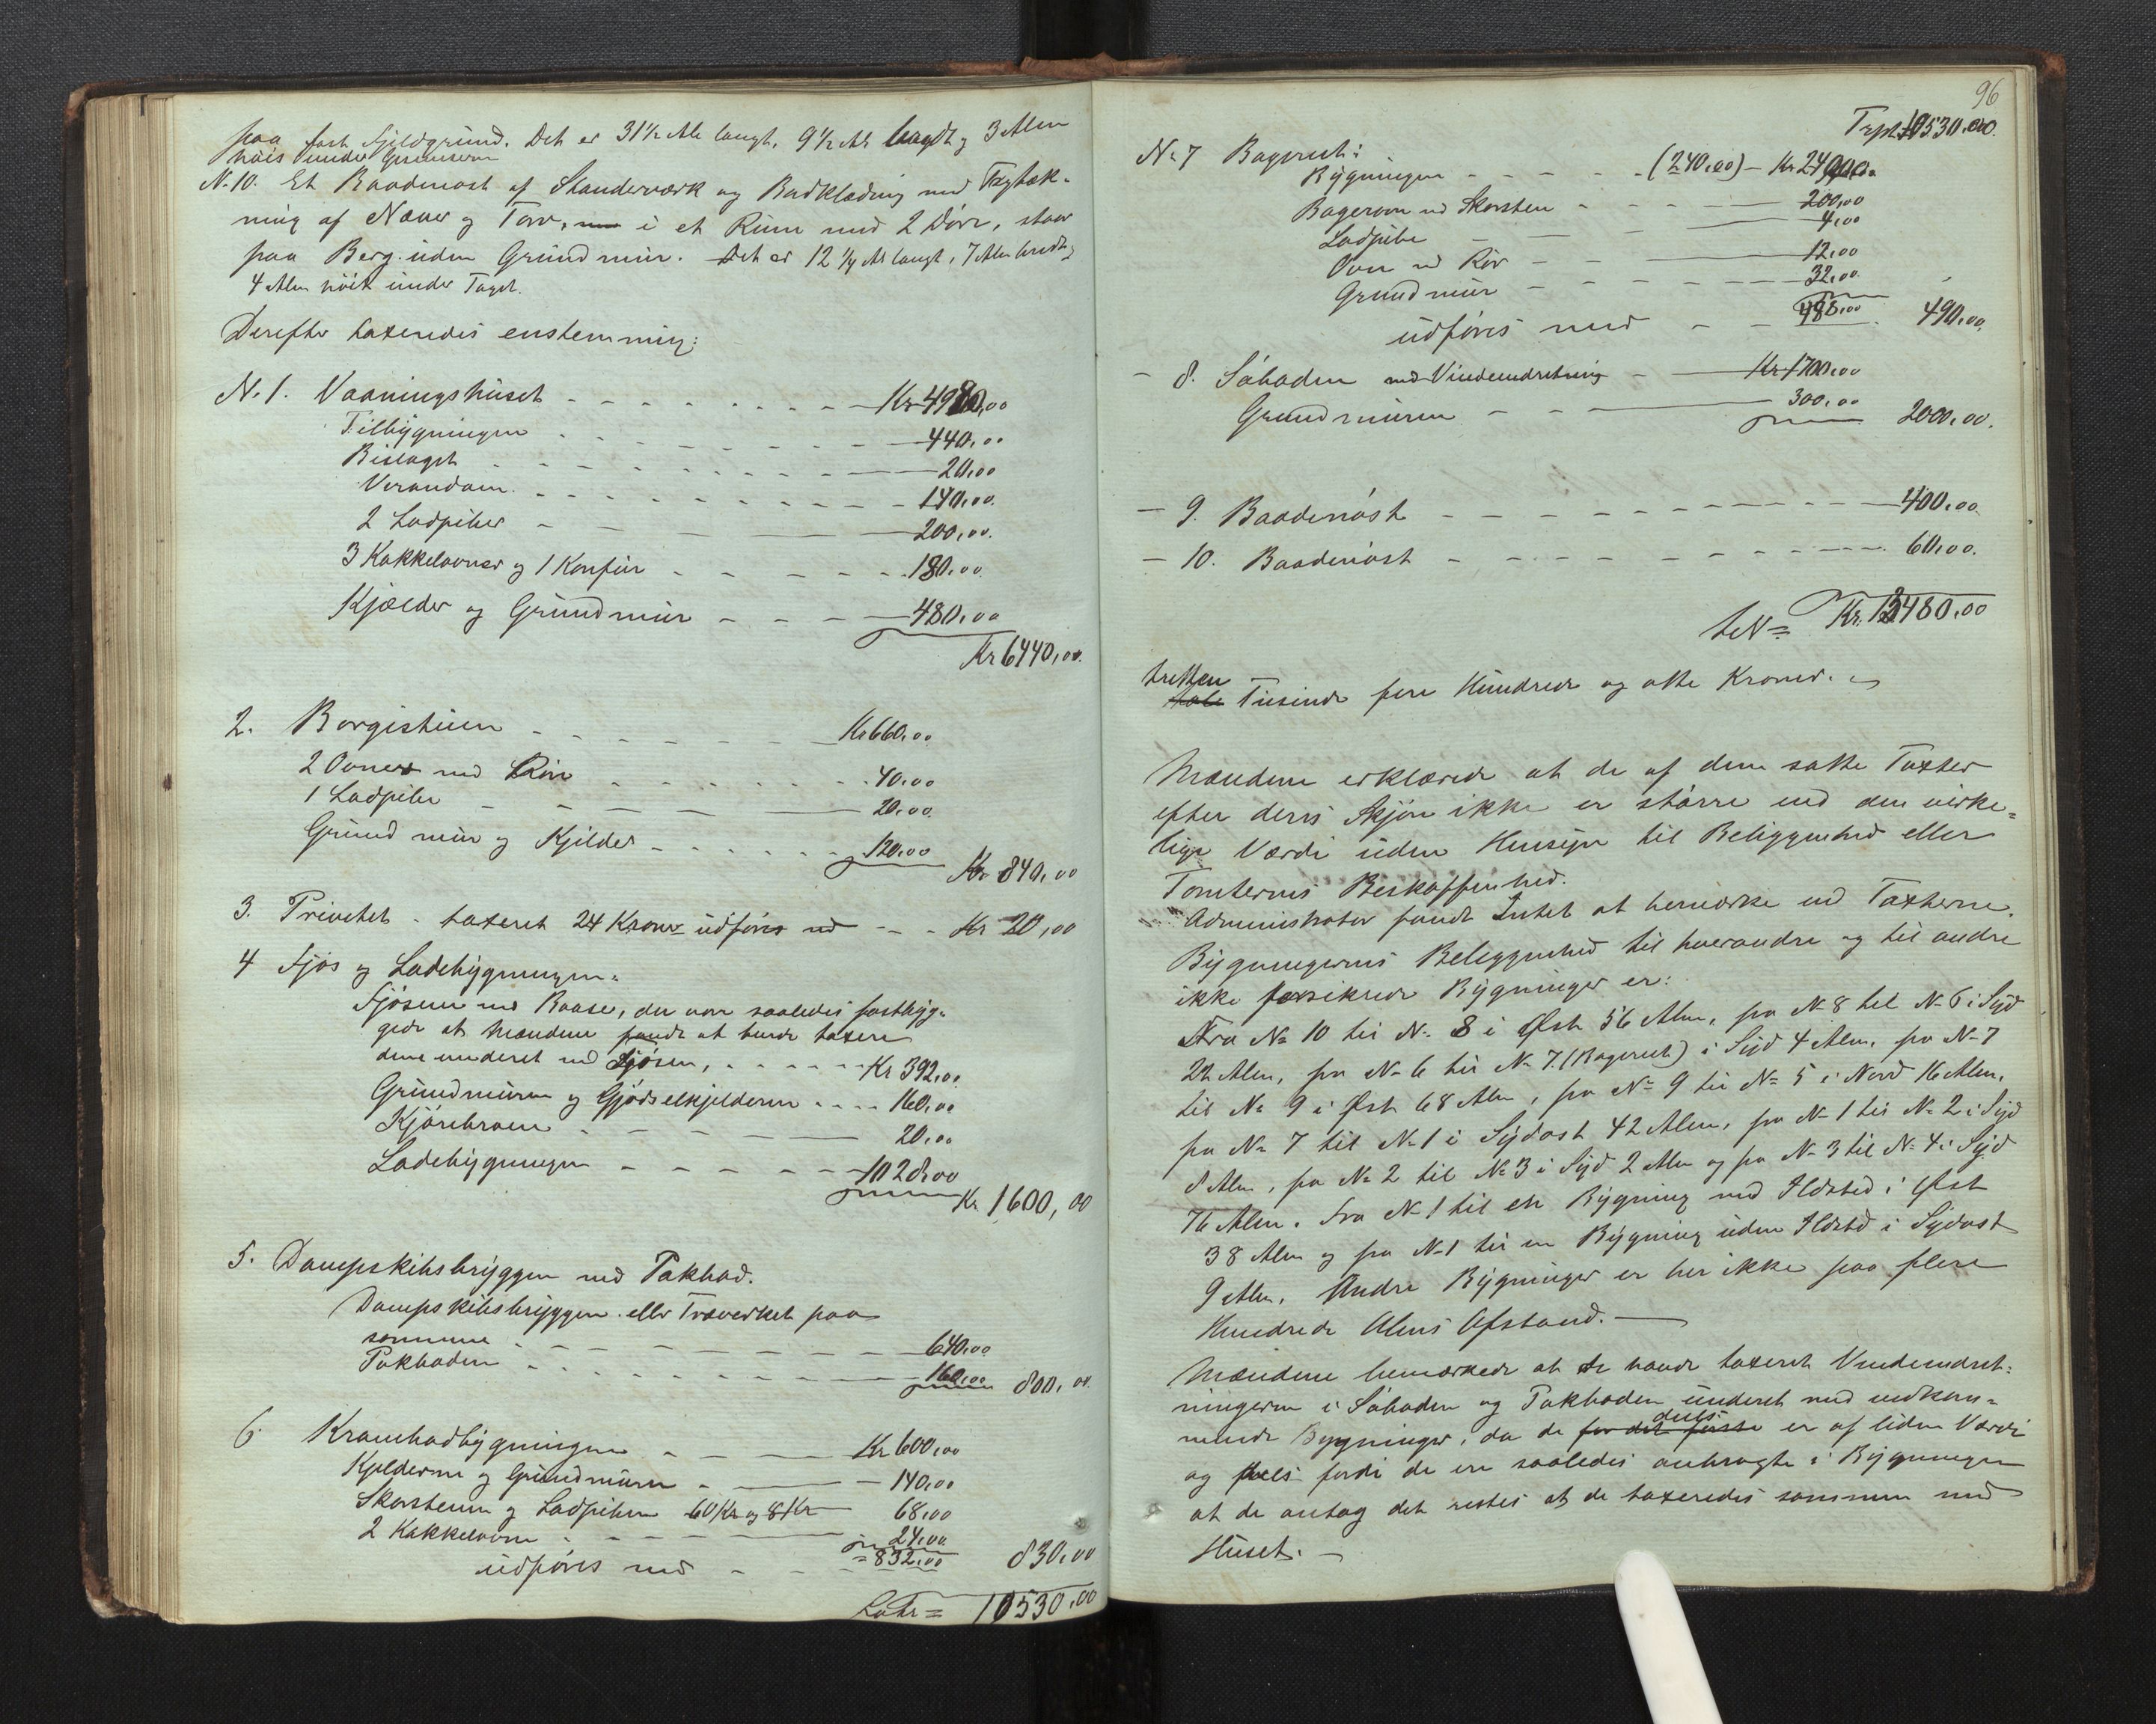 paa fast Fjeldgrund. Det er 31½ Al. langt, 9½ Al. bredt og 3 Alen
høit under Gesimsen
N. 10. Et Baadenøst af Standerværk og Bordklædning med Tagtæk-
ning af Næver og Torv, i et Rum med 2 Døre, staar
paa Berg uden Grundmur. Det er 12¼ Al. langt, 7 Alen bredt,
4 Alen høit under Taget.
Derefter taxeredes enstemmig:
N. 1. Vaaningshuset Kr 4980,00
Tilbygningen 440,00
Bislaget 20,00
Verandaen 140,00
2 Ladpiber 200,00
3 Kakkelovner og 1 Komfur 180,00
Kjælder og Grundmur 480,00
Kr 6440,00.
2. Borgestuen Kr 660,00
2 Ovner med Rør 40,00
1 Ladpibe 20,00
Grundmur og Kjelder 120,00
Kr 840,00
3. Privetet taxeret 24 Kroner udføres med Kr 20,00
4 Fjøs og Ladebygningen:
Fjøsene med Baase, der var saaledes fastbyg-
gede at Mændene fandt at burde taxere
dem underet med Fjøsen, Kr 392,00
Grundmuren og Gjødselkjelderen 160,00
Kjørebroen 20,00
Ladebygningen 1028,00
Kr 1600,00
5. Dampskibsbryggen med Pakbod.
Dampskibsbryggen eller Træverket paa
samme 640,00
Pakboden 160,00 800,00
6. Krambodbygningen Kr 600,00
Kjelderne og Grundmuren 140,00
Skorstenen og Ladpiben 60 Kr og 8 Kr 68,00
2 Kakkelovne 24,00
= 832,00
udføres med 830,00
Latr = 10530,00
96
Trspt 10530,00.
N. 7 Bageriet:
Bygningen (240,00) Kr 240,00
Bagerovn med Skorsten 200,00
Ladpibe 4,00
Ovn med Rør 12,00
Grundmur 32,00
488,00
udføres med 490,00
- 8. Søboden med Vindeindretning Kr 1700,00
Grundmuren 300,00
2000,00.
- 9. Baadenøst 400,00
- 10. Baadenøst 60,00.
Kr. 13480,00
tretten
tolv Tusinde fire Hundrede og otte Kroner.
Mændene erklærede at de af dem satte Taxter
efter deres Skjøn ikke er større end den virke-
lige Værdi uden Hensyn til Beliggenhed eller
Tomternes Beskaffenhed.
Administrator fandt Intet at bemærke ved Taxterne.
Bygningernes Beliggenhed til hverandre og til andre
ikke forsikrede Bygninger er:
Fra N. 10 til N. 8 i Øst 56 Alen, fra N. 8 til N. 6 i Syd
22 Alen, fra N. 6 til N. 7 (Bageriet) i Syd 4 Alen, fra N. 7
til N. 9 i Øst 68 Alen, fra N. 9 til N. 5 i Nord 16 Alen,
fra N. 7 til N. 1 i Sydost 42 Alen, fra N. 1 til N. 2 i Syd
8 Alen, fra N. 2 til N. 3 i Syd 2 Alen og fra N. 3 til N. 4 i Syd
76 Alen. Fra N. 1 til en Bygning med Ildsted i Øst
38 Alen og fra N. 1 til en Bygning uden Ildsted i Sydost
9 Alen. Andre Bygninger er her ikke paa flere
Hundrede Alens Afstand.
Mændene bemærkede at de havde taxeret Vindeindret-
ningerne i Søboden og Pakboden underet med vedkom-
mende Bygninger, da de for det første deels er af liden Værdi
og deels fordi de ere saaledes anbragte i Bygningen
at de antog det rettest at de taxeredes sammen med
Huset.